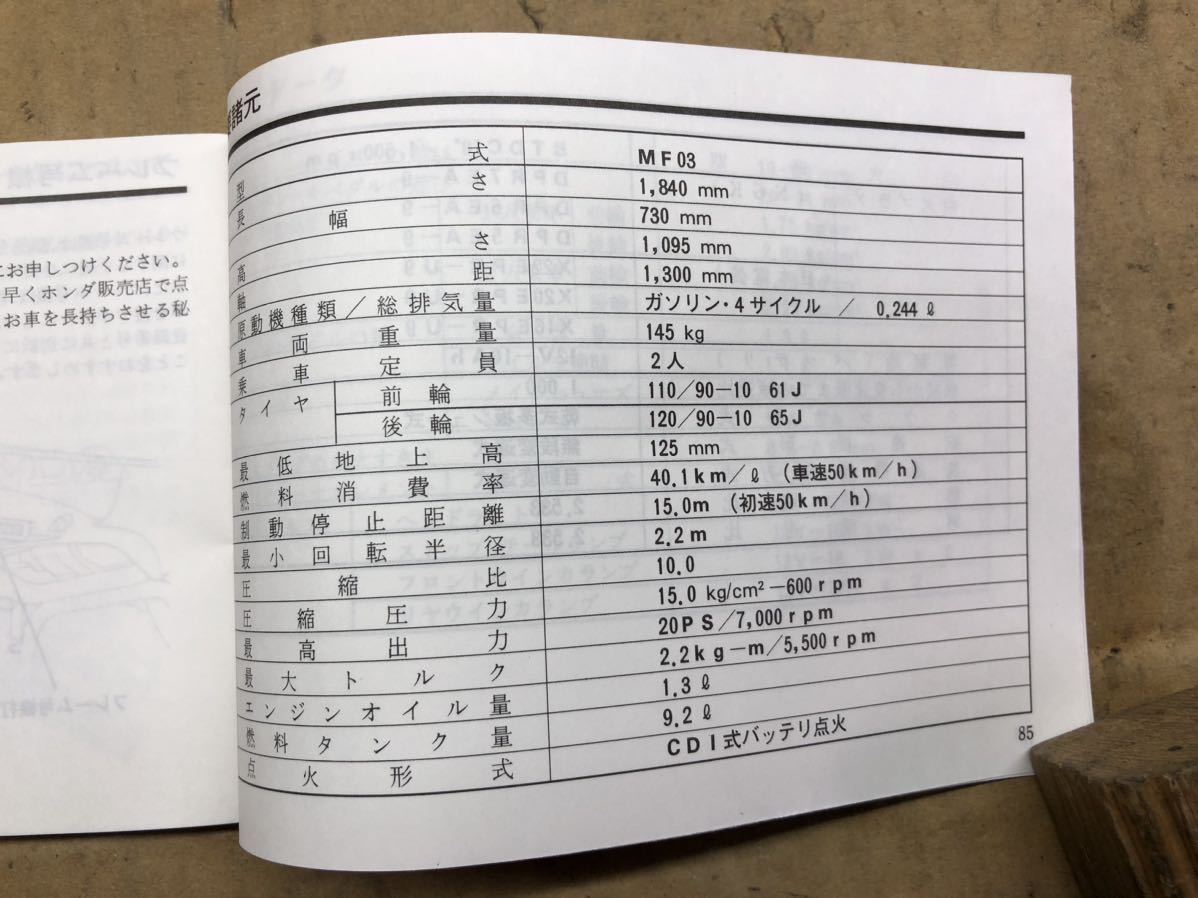 にお申しつけください。
早くホンダ販売店で点
お車を長持ちさせる秘
諸元
型式 MF03
長さ 1,840 mm
幅 730 mm
高さ 1,095 mm
軸距 1,300 mm
原動機種類/総排気量 ガソリン・4サイクル / 0.244ℓ
車両重量 145 kg
乗車定員 2人
タイヤ 前輪 110/90-10 61J
後輪 120/90-10 65J
最低地上高 125 mm
燃料消費率 40.1km/ℓ (車速50km/h)
制動停止距離 15.0m (初速50km/h)
最小回転半径 2.2m
圧縮比 10.0
圧縮圧力 15.0 kg/cm²-600rpm
最高出力 20PS/7,000rpm
最大トルク 2.2kg-m/5,500rpm
エンジンオイル量 1.3ℓ
燃料タンク量 9.2ℓ
点火形式 CDI式バッテリ点火
85